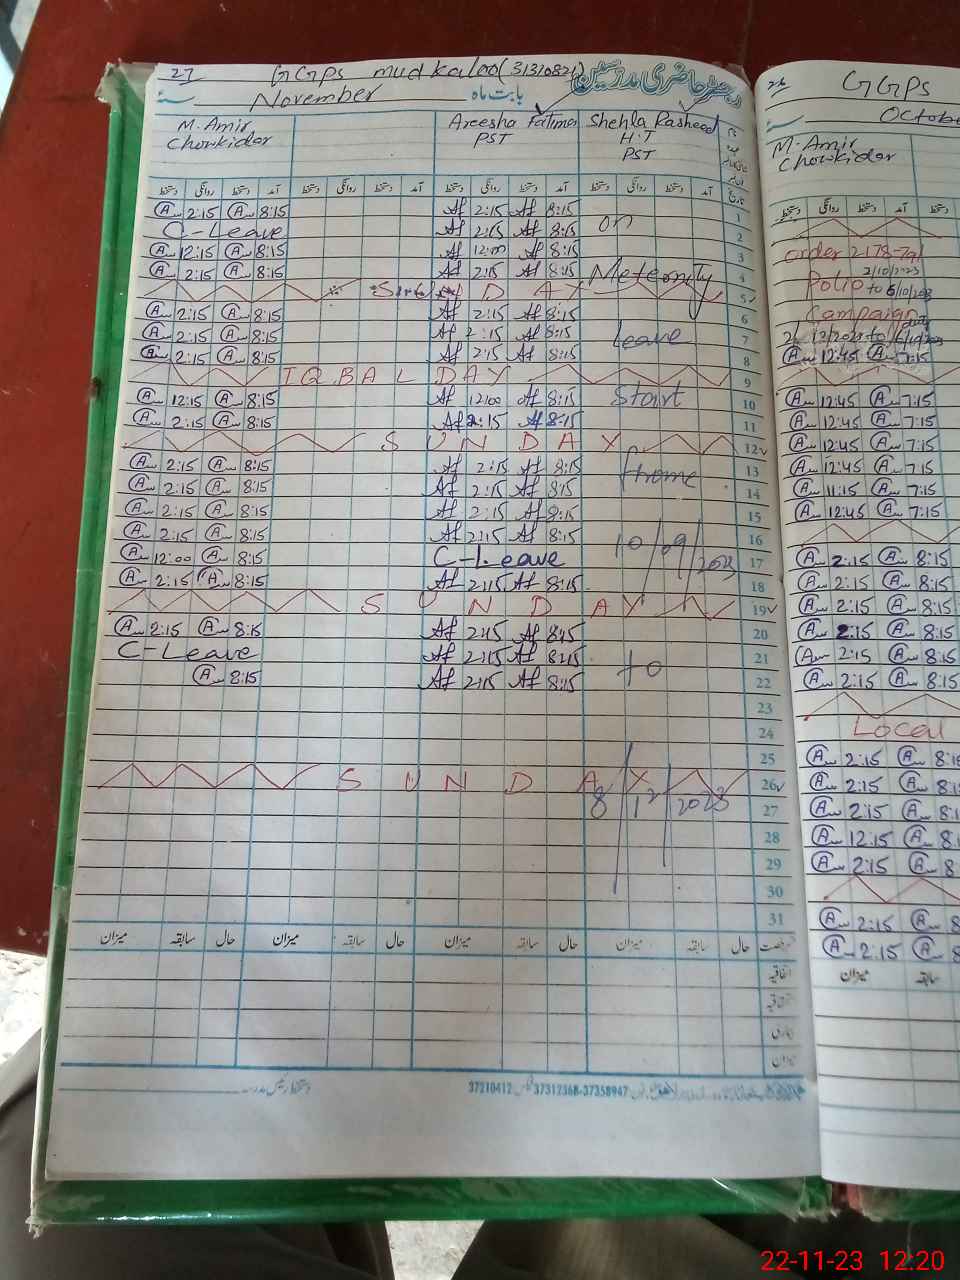 27 GGPS mud kaloo (31310821) رجسٹر حاضری مدرسین
November بابت ماہ
M. Amir Areesha Fatima Shehla Rasheed
Chowkidar PST H.T
PST
دستخط روانگی دستخط آمد دستخط روانگی دستخط آمد دستخط روانگی دستخط آمد دستخط روانگی دستخط آمد تاریخ
2:15 8:15 Af 2:15 Af 8:15 1
C-Leave Af 2:15 Af 8:15 on 2
12:15 8:15 Af 12:00 Af 8:15 3
2:15 8:15 Af 2:15 Af 8:15 Meternity 4
SUNDAY 5
2:15 8:15 Af 2:15 Af 8:15 6
2:15 8:15 Af 2:15 Af 8:15 Leave 7
2:15 8:15 Af 2:15 Af 8:15 8
IQBAL DAY 9
12:15 8:15 Af 12:00 Af 8:15 Start 10
2:15 8:15 Af 2:15 Af 8:15 11
SUNDAY 12
2:15 8:15 Af 2:15 Af 8:15 from 13
2:15 8:15 Af 2:15 Af 8:15 14
2:15 8:15 Af 2:15 Af 8:15 15
2:15 8:15 Af 2:15 Af 8:15 16
12:00 8:15 C-Leave 10/09/2023 17
2:15 8:15 Af 2:15 Af 8:15 18
SUNDAY 19
2:15 8:15 Af 2:15 Af 8:15 20
C-Leave Af 2:15 Af 8:15 to 21
8:15 Af 2:15 Af 8:15 22
23
24
25
SUNDAY 26
8/12/2023 27
28
29
30
31
میزان سابقہ حال میزان سابقہ حال میزان سابقہ حال میزان سابقہ حال رخصت
اتفاقیہ
میزان
37210412 37312368-37358947
GGPS
Octobe
M. Amir
Chowkidar
دستخط روانگی دستخط آمد دستخط
order 2178-79/
2/10/2023
Polio to 6/10/2023
Campaign
12:45 7:15
12:45 7:15
12:45 7:15
12:45 7:15
12:45 7:15
11:15 7:15
12:45 7:15
2:15 8:15
2:15 8:15
2:15 8:15
2:15 8:15
2:15 8:15
2:15 8:15
Local
2:15 8:15
2:15 8:1
2:15 8:1
12:15 8:1
2:15 8
2:15 8
2:15 8
میزان سابقہ
22-11-23 12:20